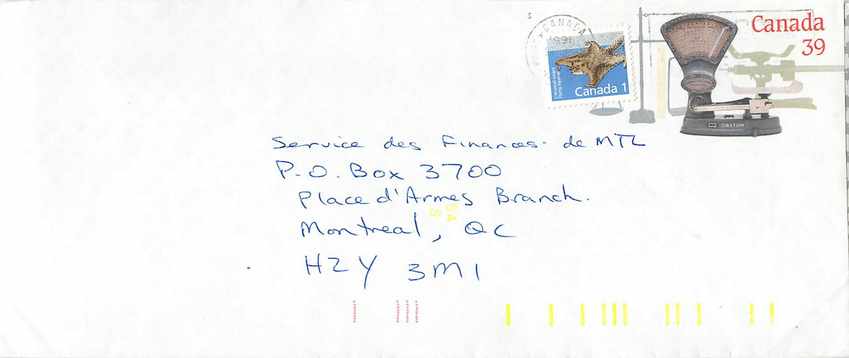 CANADA
1991
Canada
39
Canada 1
Service des Finances de MTL
P.O. Box 3700
Place d'Armes Branch.
Montreal, QC
H2Y 3M1